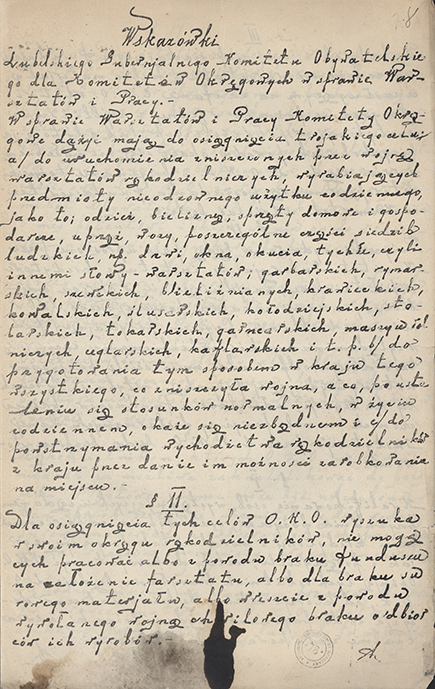 8
Wskazówki
Lubelskiego Gubernjalnego Komitetu Obywatelskie-
go dla Komitetów Okręgowych w sprawie War-
sztatów i Pracy.-
W sprawie Warsztatów i Pracy Komitety Okrę-
gowe dążyć mają do osiągnięcia trojakiego celu:
a/ do uruchomienia zniszczonych przez wojnę
warsztatów rękodzielniczych, wyrabiających
przedmioty nieodzownego użytku codziennego,
jako to: odzież, bieliznę, sprzęty domowe i gospo-
darcze, uprzęż, wozy, poszczególne części siedzib
ludzkich, np. drzwi, okna, okucia, tychże, czyli
innemi słowy- warsztatów: garbarskich, rymar-
skich, szewskich, bieliźnianych, krawieckich,
kowalskich, ślusarskich, kołodziejskich, sto-
larskich, tokarskich, garncarskich, maszyn rol-
niczych, węglarskich, kaflarskich i t. p. b/ do
przygotowania tym sposobem w kraju tego
wszystkiego, co zniszczyła wojna, a co, po usta-
leniu się stosunków normalnych, w życiu
codziennem, okaże się niezbędnem i c/ do
powstrzymania wychodźctwa rękodzielników
z kraju przez danie im możności zarobkowania
na miejscu.-
§ II.
Dla osiągnięcia tych celów O.K.O. wyszuka
w swoim okręgu rękodzielników, nie mogą-
cych pracować albo z porodu braku funduszu
na założenie warsztatu, albo dla braku su-
rowego materjału, albo wreszcie z powodu
wywołanego wojną chwilowego braku odbior-
ców ich wyrobów.-